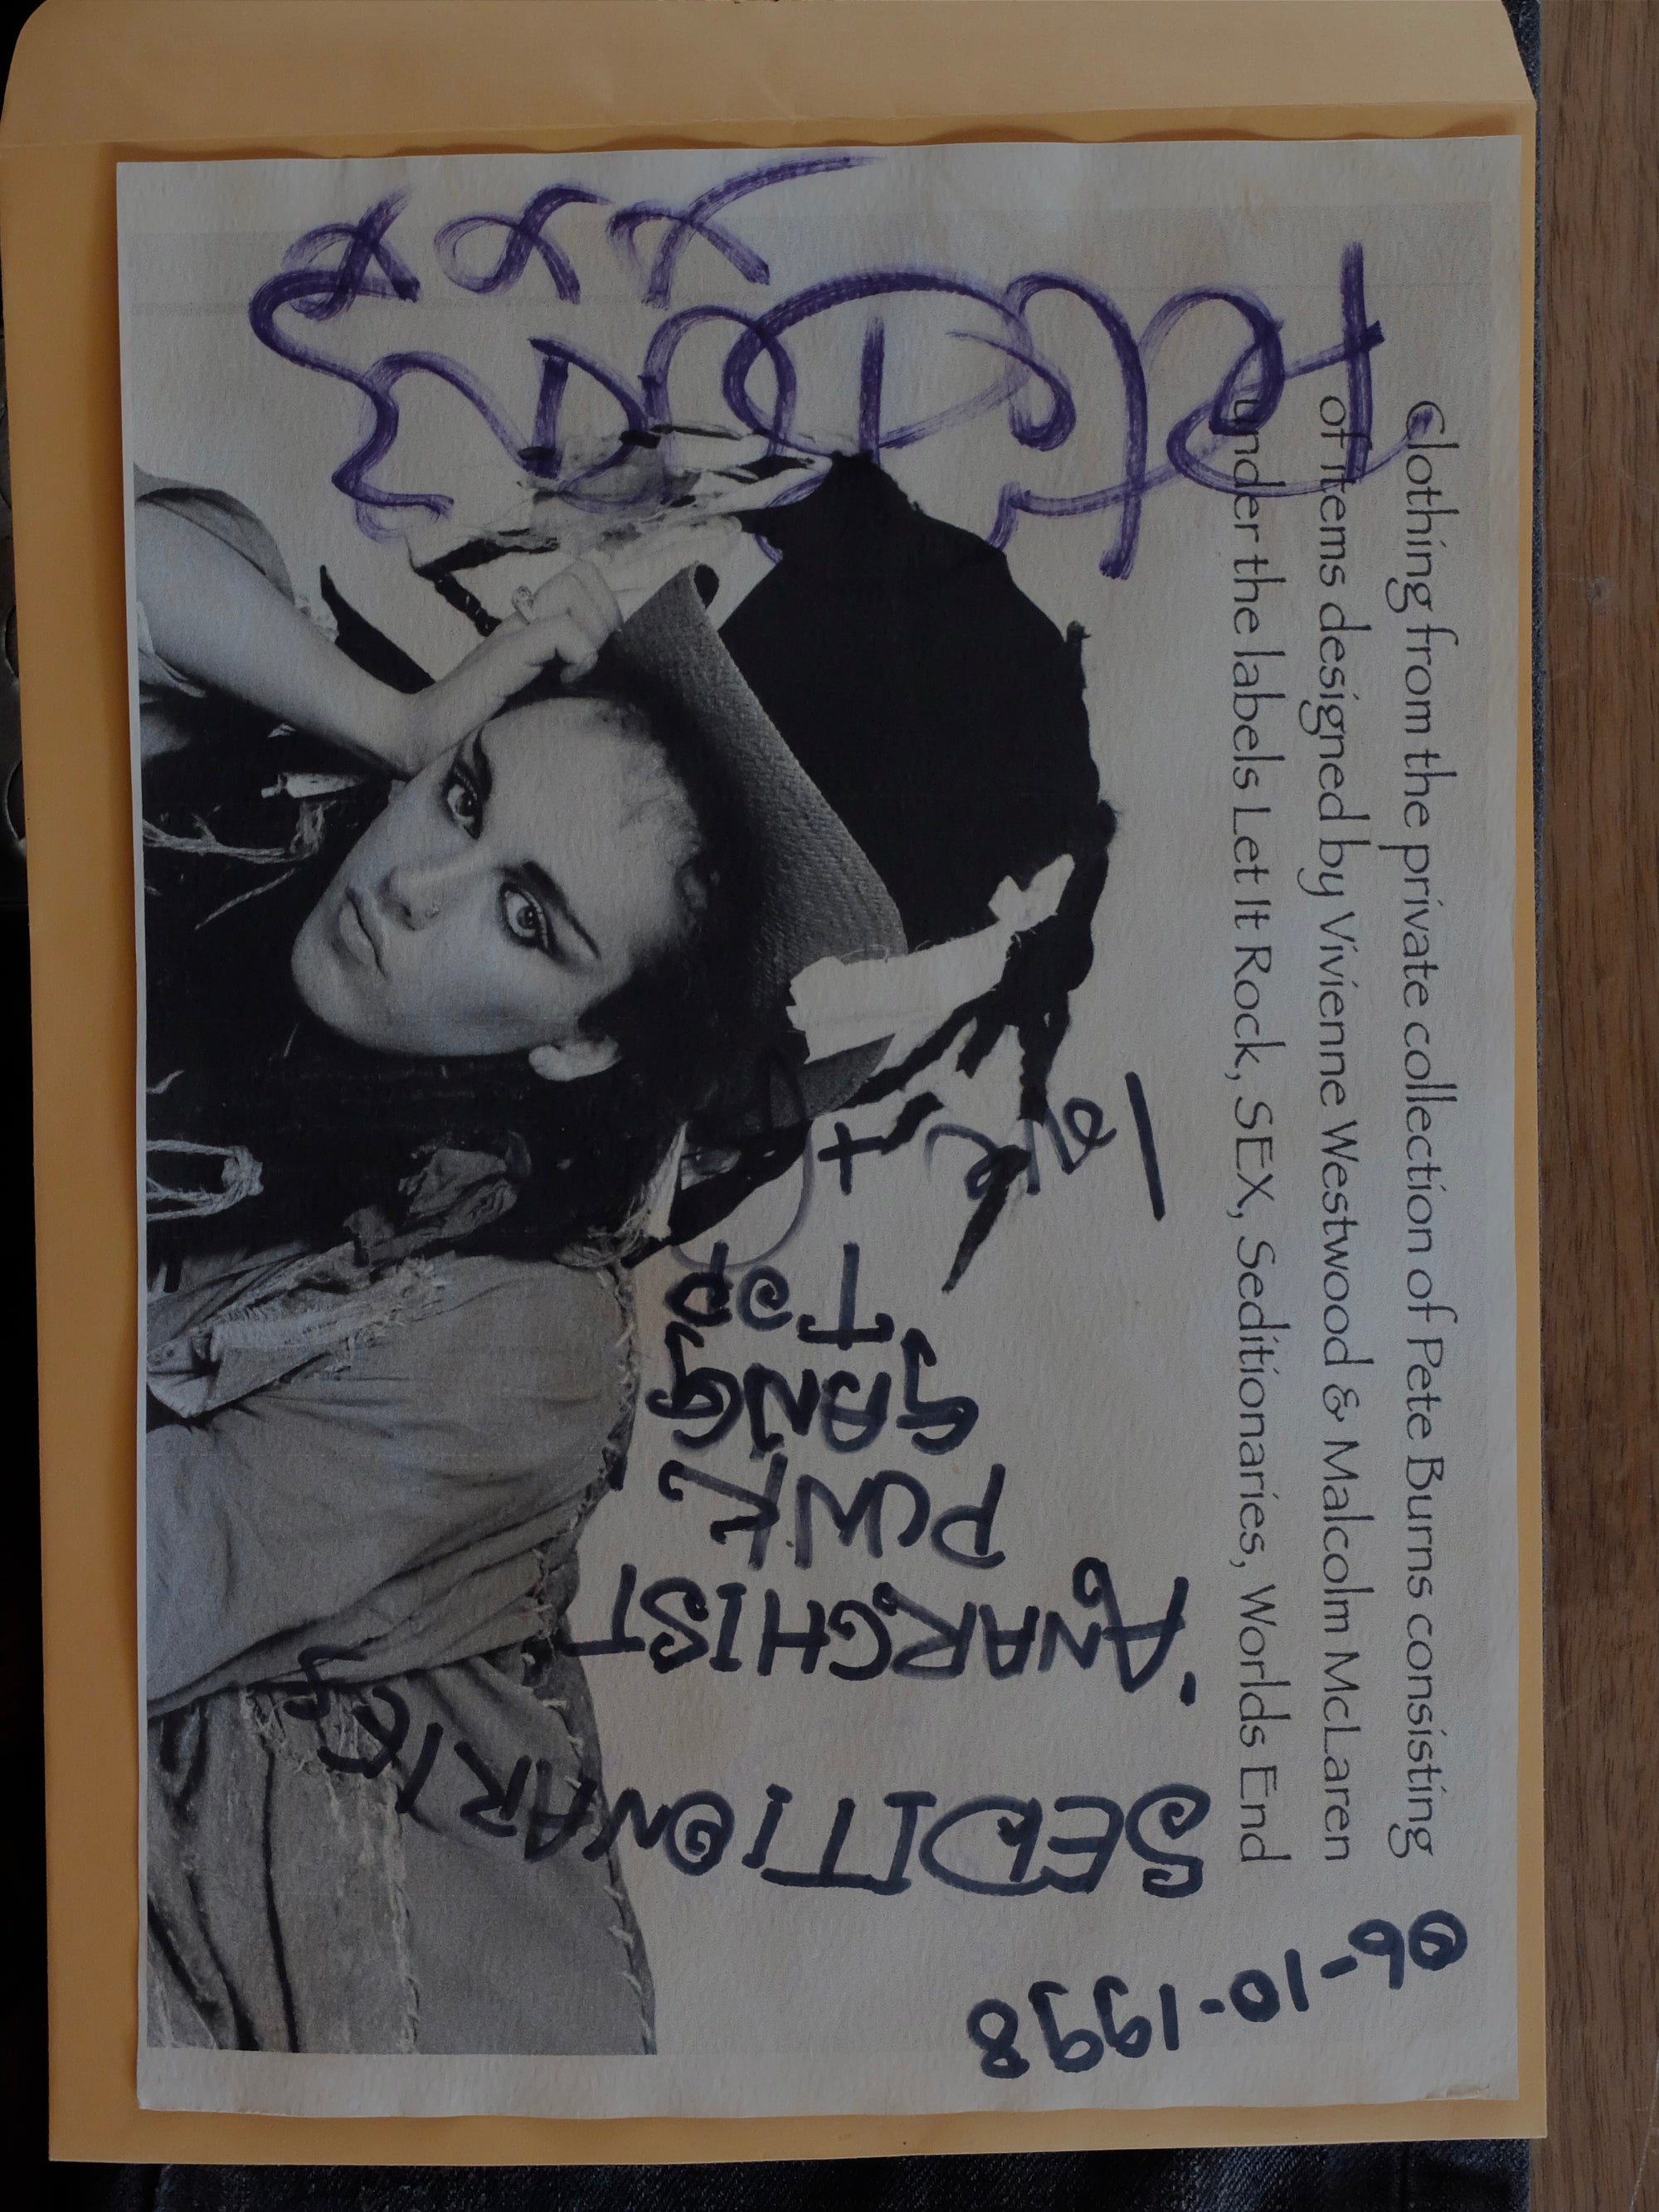 Clothing from the private collection of Pete Burns consisting
of items designed by Vivienne Westwood & Malcolm McLaren
under the labels Let It Rock, SEX, Seditionaries, Worlds End
06-10-1998
SEDITIONARIES
'ANARCHIST
PUNK
GANG
TOP
+
Pete
Burns
xxx